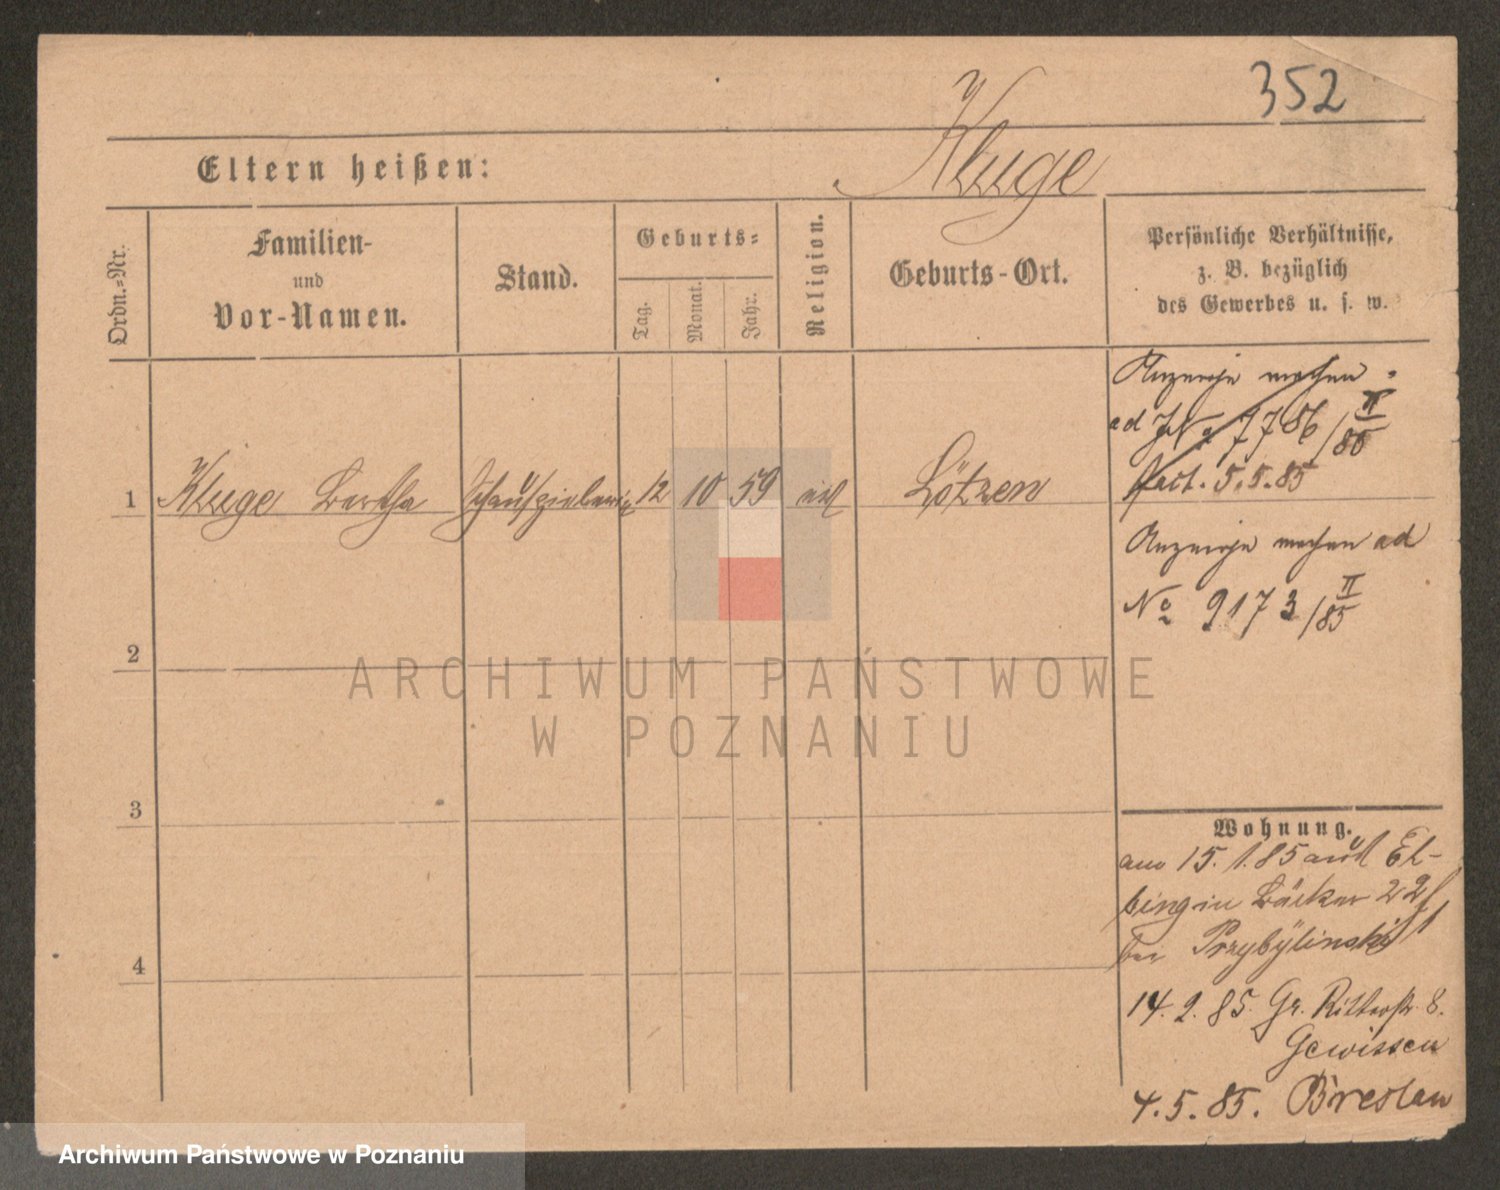 352
Kluge
Eltern heißen:
Ordn.-Nr.
Familien-
und
Vor-Namen.
Stand.
Geburts-
Tag.
Monat.
Jahr.
Religion.
Geburts-Ort.
Persönliche Verhältnisse,
z. B. bezüglich
des Gewerbes u. s. w.
Anzeige machen
ad JNo 7786/II
85
fact. 5.5.85
1 Kluge Bertha Schauspielerin 12 10 59 Lötzen
Anzeige machen ad
No 9173/II
85
2
3
4
Wohnung.
am 15.1.85 aus El-
bing in Bäcker 22
bei Przybÿlinski
14.2.85 Gr. Ritterstr. 8.
Gewissen
4.5.85. Breslau
ARCHIWUM PAŃSTWOWE
W POZNANIU
Archiwum Państwowe w Poznaniu